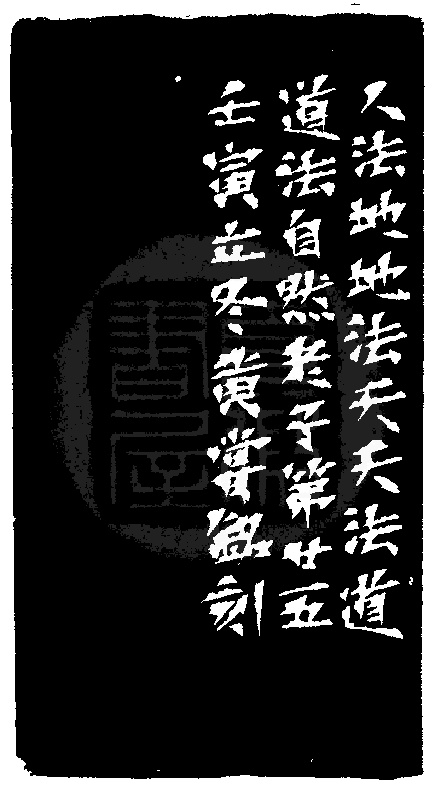 人法地地法天天法道
道法自然老子第廿五
壬寅立冬黄嘗銘刻